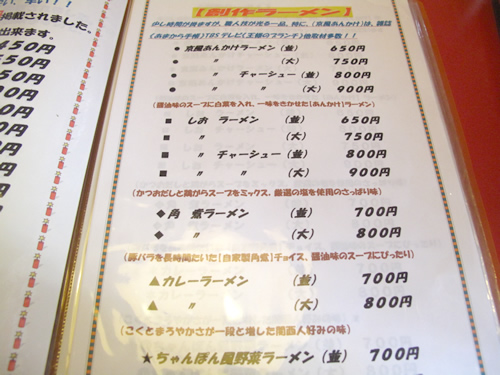 掲載されました。
出来ます。
450円
550円
【創作ラーメン】
少し時間が掛ますが、職人技が光る一品、特に、《京風あんかけ》は、雑誌
《あまから手帳》TBSテレビ《王様のブランチ》他取材多数！！
● 京風あんかけラーメン（並） 650円
● 〃 （大） 750円
● 〃 チャーシュー（並） 800円
● 〃 〃 （大） 900円
（醤油味のスープに白菜を入れ、一味をきかせた【あんかけ】ラーメン）
■ しお ラーメン （並） 650円
■ 〃 （大） 750円
■ 〃 チャーシュー（並） 800円
■ 〃 〃 （大） 900円
（かつおだしと鶏がらスープをミックス、厳選の塩を使用のさっぱり味）
◆角 煮ラーメン （並） 700円
◆ 〃 （大） 800円
（豚バラを長時間たいた【自家製角煮】チョイス、醤油味のスープにぴったり）
▲カレーラーメン （並） 700円
▲ 〃 （大） 800円
（こくとまろやかさが一段と増した関西人好みの味）
★ちゃんぽん風野菜ラーメン（並） 700円